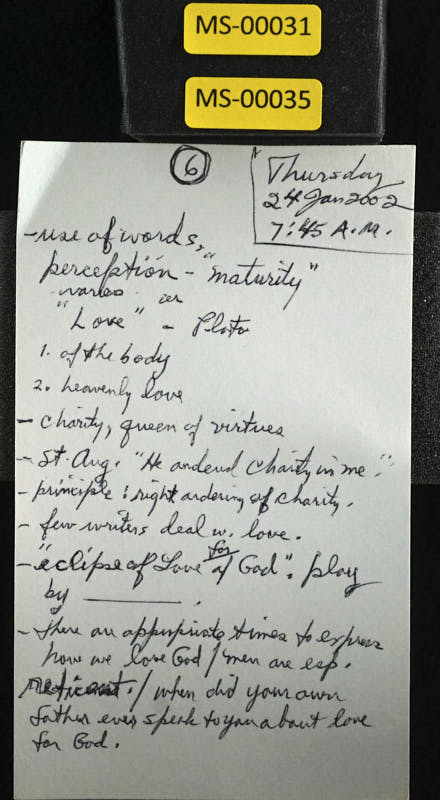 MS-00031
MS-00035
6
Thursday
24 Jan 2002
7:45 A.M.
- use of words,
perception - "maturity"
varies or
"Love" - Plato
1. of the body
2. heavenly love
- charity, queen of virtues
- St. Aug. "He ordered Charity in me."
- principle: right ordering of charity.
- few writers deal w. love.
- "eclipse of Love of God". play
for
by ______ .
- There are appropriate times to express
how we love God / men are esp.
reticent. / when did your own
father ever speak to you about love
for God.